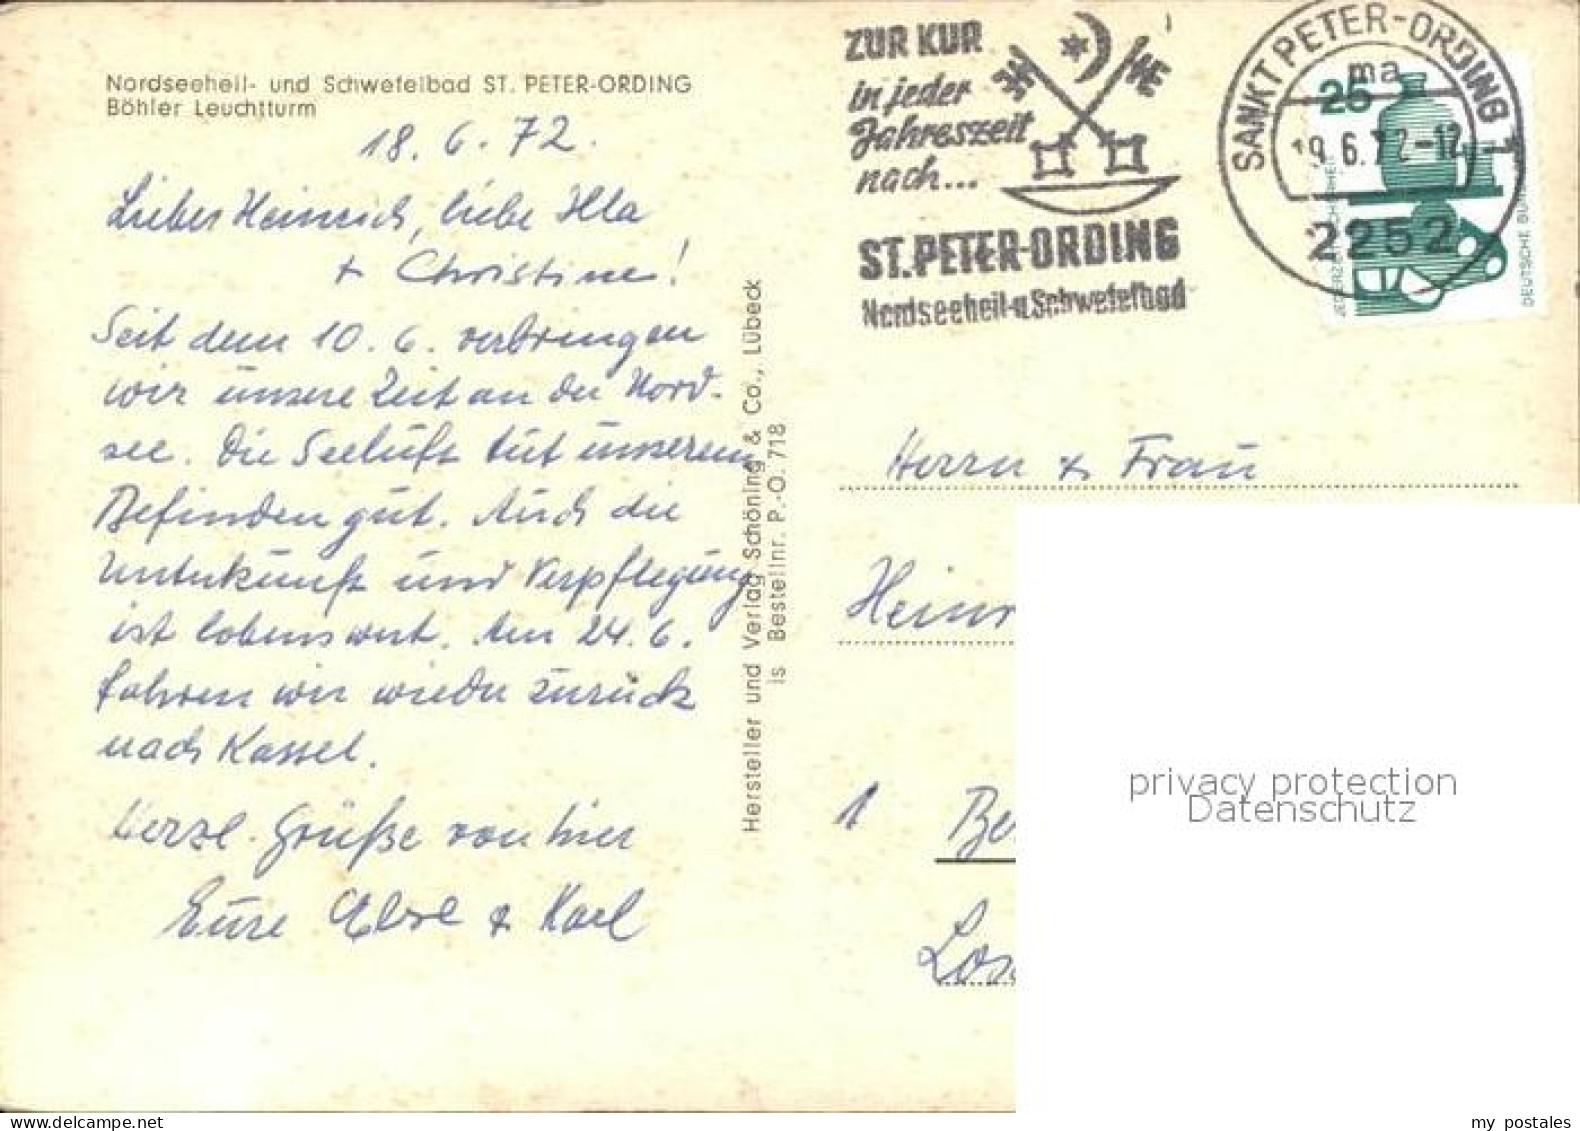 Nordseeheil- und Schwefelbad ST. PETER-ORDING
Böhler Leuchtturm
18. 6. 72.
Lieber Heinrich, liebe Illa
+ Christine!
Seit dem 10. 6. verbringen
wir unsere Zeit an der Nord-
see. Die Seeluft tut unserem
Befinden gut. Auch die
Unterkunft und Verpflegung
ist lobenswert. Am 24. 6.
fahren wir wieder zurück
nach Kassel.
Herzl. Grüße von hier
Eure Else & Karl
Hersteller und Verlag Schöning & Co., Lübeck
is Bestellnr. P.-O. 718
ZUR KUR
in jeder
Jahreszeit
nach...
ST. PETER-ORDING
Nordseeheil-u. Schwefelbad
SANKT PETER-ORDING 1
ma
19.6.72-12
2252
25
JEDERZEIT SICHERHEIT
DEUTSCHE BUN
Herrn & Frau
Heinr
1 Be
Los
privacy protection
Datenschutz
www.delcampe.net
my_postales